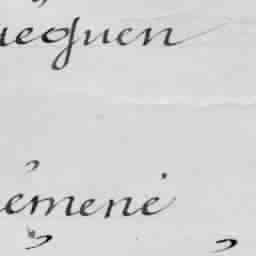 ueguen
émené